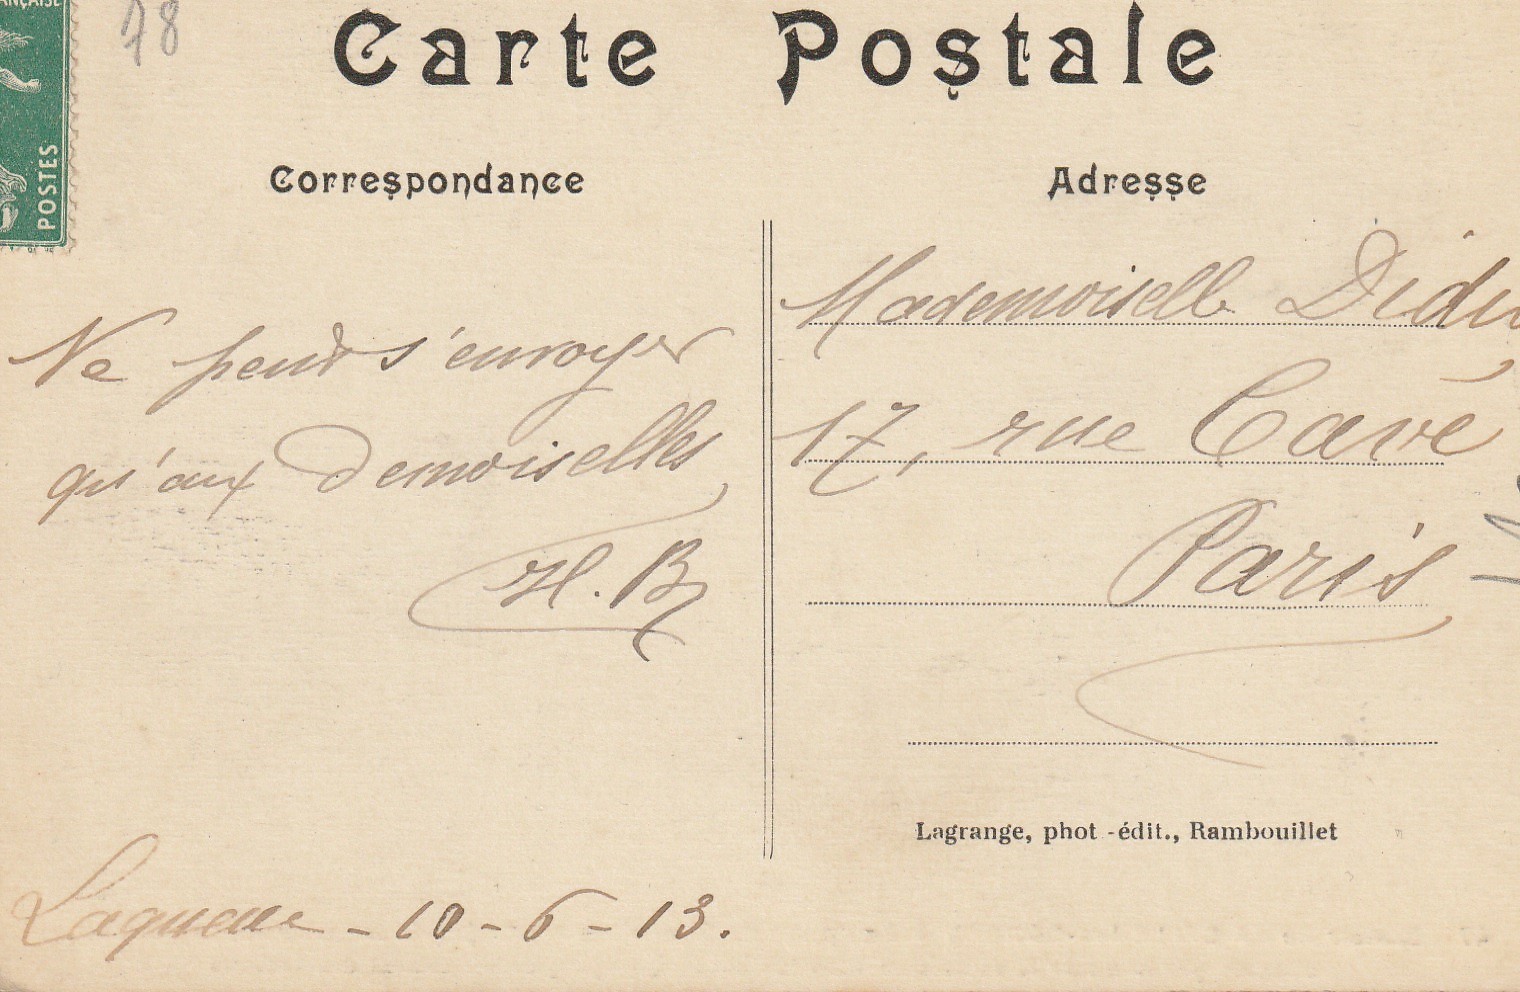 ANÇAISE
POSTES
78
Carte Postale
Correspondance
Adresse
Ne peut s'envoyer
qu'aux Demoiselles,
H. B
Laqueue - 10 - 6 - 13.
Mademoiselle Didi
17, rue Cavé
Paris
Lagrange, phot-édit., Rambouillet